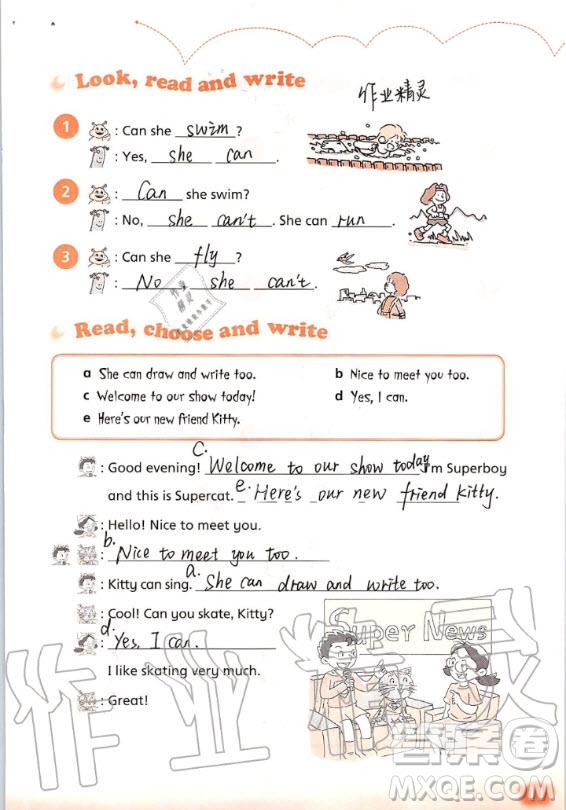 Look, read and write
作业精灵
1 : Can she swim ?
: Yes, she can .
2 : Can she swim?
: No, she can't . She can run .
3 : Can she fly ?
: No she can't .
作业精灵
Read, choose and write
a She can draw and write too. b Nice to meet you too.
c Welcome to our show today! d Yes, I can.
e Here's our new friend Kitty.
: Good evening! c. Welcome to our show today I'm Superboy
and this is Supercat. e. Here's our new friend Kitty.
: Hello! Nice to meet you.
: b. Nice to meet you too.
: Kitty can sing. a. She can draw and write too.
: Cool! Can you skate, Kitty?
: d. Yes, I can.
I like skating very much.
: Great!
Super News
作业
答案圈
MXQE.COM